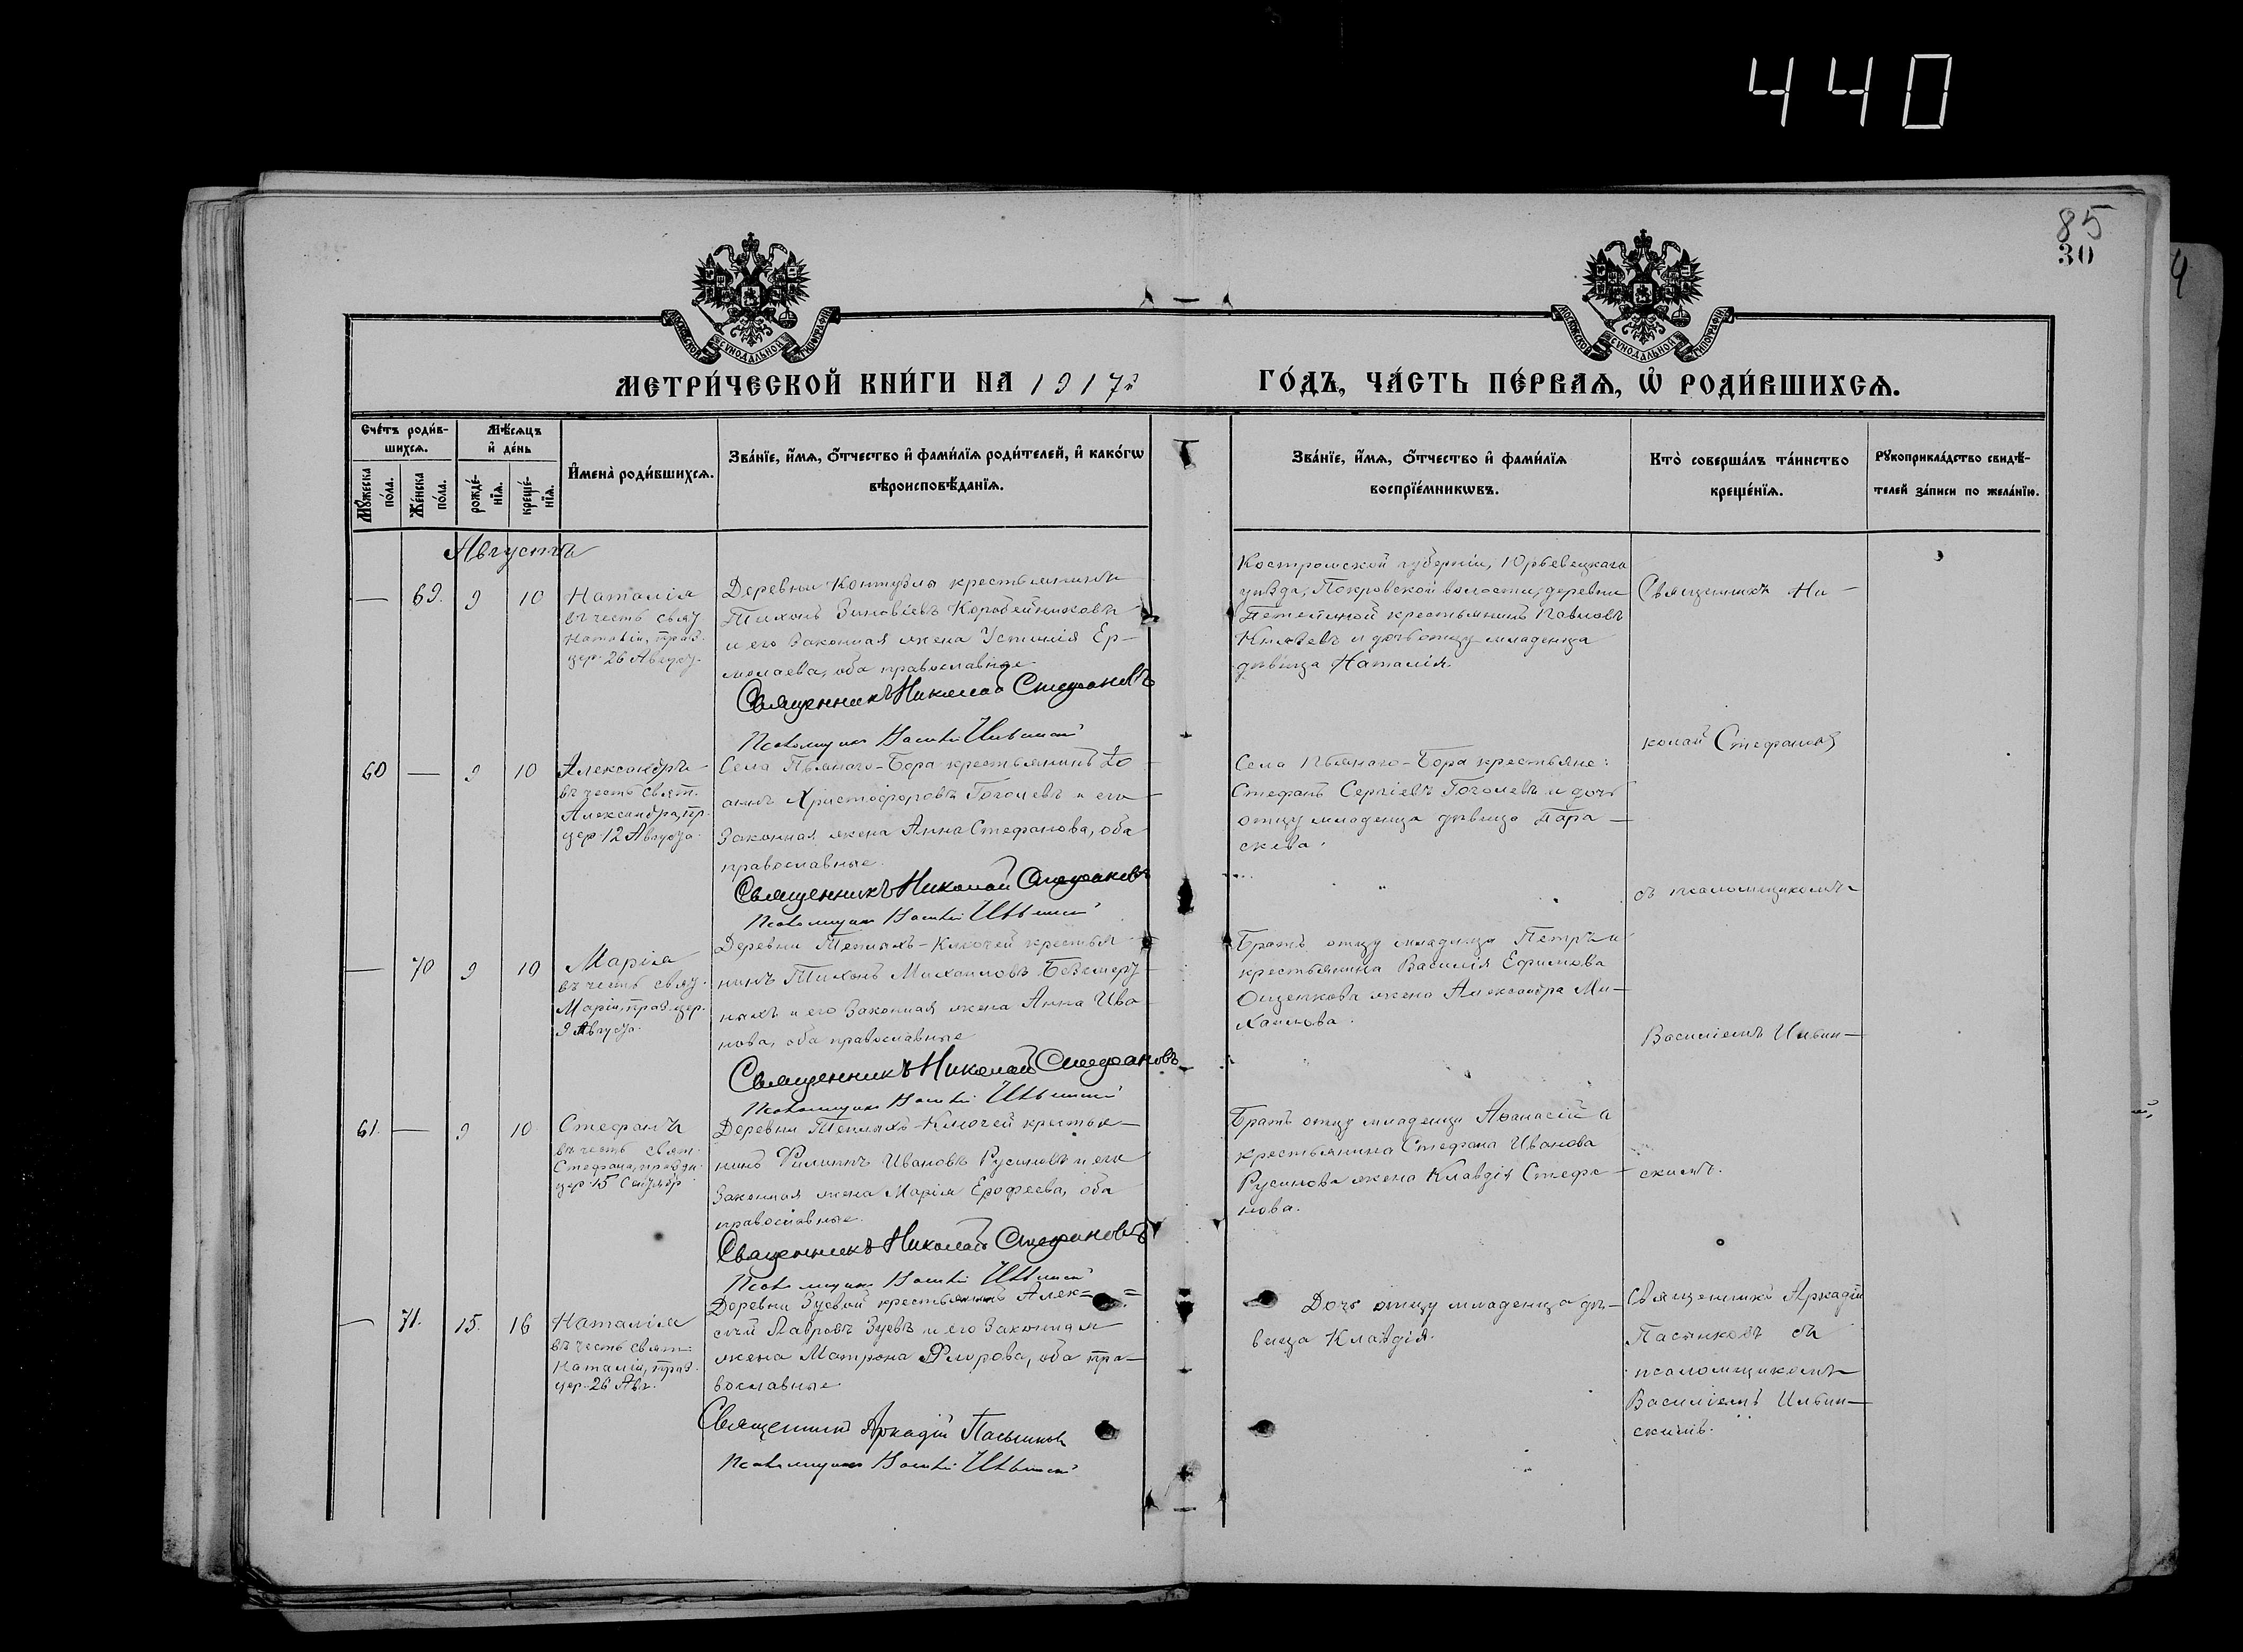 440
85
30
МОСКОВСКОЙ СѴНОДАЛЬНОЙ ТИПОГРАФІИ
МОСКОВСКОЙ СѴНОДАЛЬНОЙ ТИПОГРАФІИ
МЕТРИ́ЧЕСКОЙ КНИ́ГИ НА 1917й
ГО́ДЪ, ЧА́СТЬ ПЕ́РВАѦ, Ѡ҆ РОДИ́ВШИХСѦ.
Сче́тъ роди́в-
шихсѧ.
Мꙋ́жеска по́ла.
Же́нска по́ла.
Мѣ́сѧцъ
и҆ де́нь
рожде́-нїѧ.
креще́-нїѧ.
И҆мена̀ роди́вшихсѧ.
Зва́нїе, и҆́мѧ, ѻ҆́тчество и҆ фами́лїѧ роди́телей, и҆ како́гѡ
вѣроисповѣ́данїѧ.
Зва́нїе, и҆́мѧ, ѻ҆́тчество и҆ фами́лїѧ
воспрїе́мникѡвъ.
Кто̀ соверша́лъ та́инство
креще́нїѧ.
Рꙋкоприкла́дство свидѣ́-
телей за́писи по жела́нїю.
Августъ
— 69. 9 10
Наталія
въ честь свят
Наталіи, праз.
цер. 26 Август.
Деревни Контузлы крестьянинъ
Тихонъ Зиновіевъ Коробейниковъ
и его законная жена Устинія Ер-
молаева, оба православные
Священникъ Николай Стефановъ
Псаломщикъ Василій Ильинскій
Костромской губерніи, Юрьевецкаго
уѣзда, Покровской волости, деревни
крестьянинъ Павловъ
Князевъ и дочь отцу младенца
дѣвица Наталія.
Священникъ Ни-
колай Стефановъ
съ псаломщикомъ
Василіемъ Ильин-
скимъ.
60 — 9 10
Александръ
въ честь свят.
Александра, пр.
цер. 12 Августа.
Села Пьянаго-Бора крестьянинъ Іо-
аннъ Христофоровъ Гоголевъ и его
законная жена Анна Стефанова, оба
православные.
Священникъ Николай Стефановъ
Псаломщикъ Василій Ильинскій
Села Пьянаго-Бора крестьяне:
Стефанъ Сергіевъ Гоголевъ и дочь
отцу младенца дѣвица Пара-
скева.
— 70 9 10
Марія
въ честь свят.
Маріи, праз. цер.
9 Августа.
Деревни Теплыхъ-Ключей крестья-
нинъ Тихонъ Михаиловъ
и его законная жена Анна Ива-
нова, оба православные
Священникъ Николай Стефановъ
Псаломщикъ Василій Ильинскій
Братъ отцу младенца Петръ и
крестьянина Василія Ефимова
Ощепкова жена Александра Ми-
хаилова.
61. — 9 10
Стефанъ
въ честь свят.
Стефана, праздн.
цер. 15 Сентябр
Деревни Теплыхъ-Ключей крестья-
нинъ Филиппъ Ивановъ Русиновъ и его
законная жена Марія Ерофеева, оба
православные.
Священникъ Николай Стефановъ
Псаломщикъ Василій Ильинскій
Братъ отцу младенца Аѳанасій и
крестьянина Стефана Иванова
Русинова жена Клавдія Стефа-
нова.
— 71. 15. 16
Наталія
въ честь свят.
Наталіи, праз.
цер. 26 Авг.
Деревни Зуевой крестьянинъ Алек=
сѣй Лавровъ Зуевъ и его законная
жена Матрона Флорова, оба пра-
вославные
Священникъ Аркадій Пасынковъ
Псаломщикъ Василій Ильинскій
Дочь отцу младенца дѣ-
вица Клавдія.
Священникъ Аркадій
Пасынковъ съ
псаломщикомъ
Василіемъ Ильин-
скимъ.